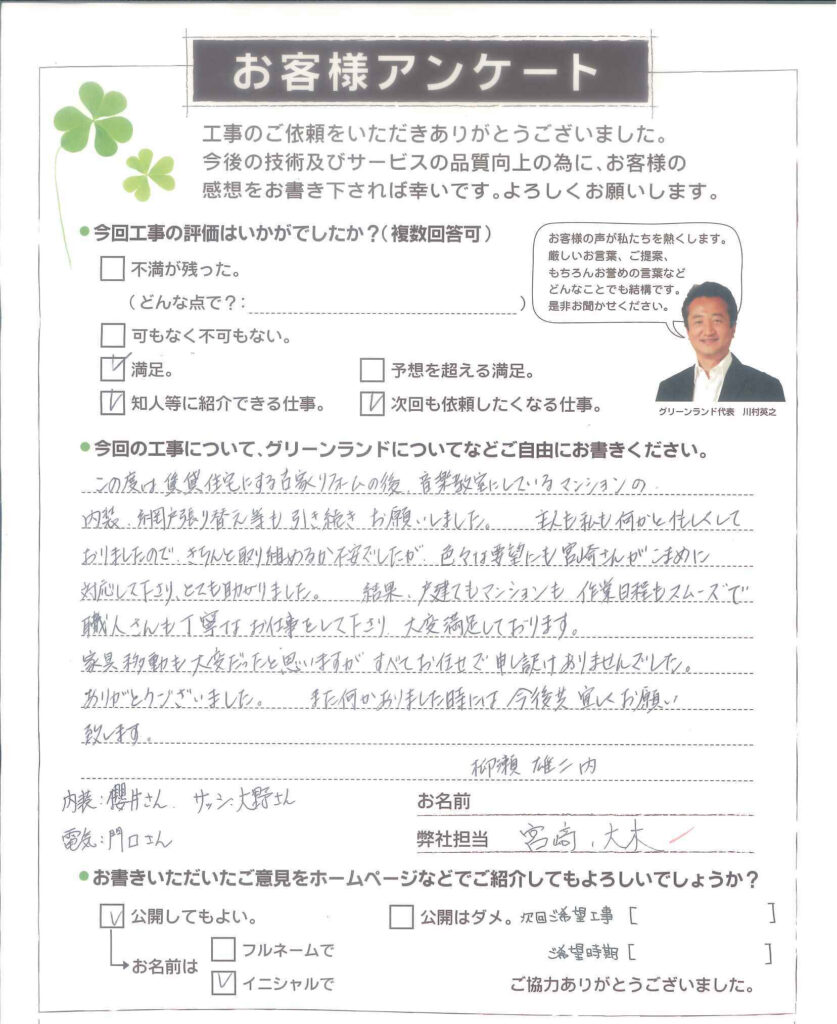 お客様アンケート
工事のご依頼をいただきありがとうございました。
今後の技術及びサービスの品質向上の為に、お客様の
感想をお書き下されば幸いです。よろしくお願いします。
●今回工事の評価はいかがでしたか？(複数回答可)
不満が残った。
(どんな点で？: )
可もなく不可もない。
満足。
予想を超える満足。
知人等に紹介できる仕事。
次回も依頼したくなる仕事。
お客様の声が私たちを熱くします。
厳しいお言葉、ご提案、
もちろんお誉めの言葉など
どんなことでも結構です。
是非お聞かせください。
グリーンランド代表 川村英之
●今回の工事について、グリーンランドについてなどご自由にお書きください。
この度は賃貸住宅にする古家リフォームの後、音楽教室にしているマンションの
内装、網戸張り替え等も引き続きお願いしました。 主人も私も何かと忙しくして
おりましたので、きちんと取り組めるか不安でしたが、色々な要望にも宮崎さんがこまめに
対応して下さり、とても助かりました。 結果、戸建てもマンションも作業日程もスムーズで
職人さんも丁寧なお仕事をして下さり、大変満足しております。
家具移動も大変だったと思いますが、すべてお任せで申し訳ありませんでした。
ありがとうございました。 また何かありました時には今後共宜しくお願い
致します。
柳瀬 雄二内
内装：櫻井さん サッシ：大野さん
電気：門口さん
お名前
弊社担当 宮崎、大木
●お書きいただいたご意見をホームページなどでご紹介してもよろしいでしょうか？
公開してもよい。
公開はダメ。
次回ご希望工事 [ ]
お名前は
フルネームで
イニシャルで
ご希望時期 [ ]
ご協力ありがとうございました。